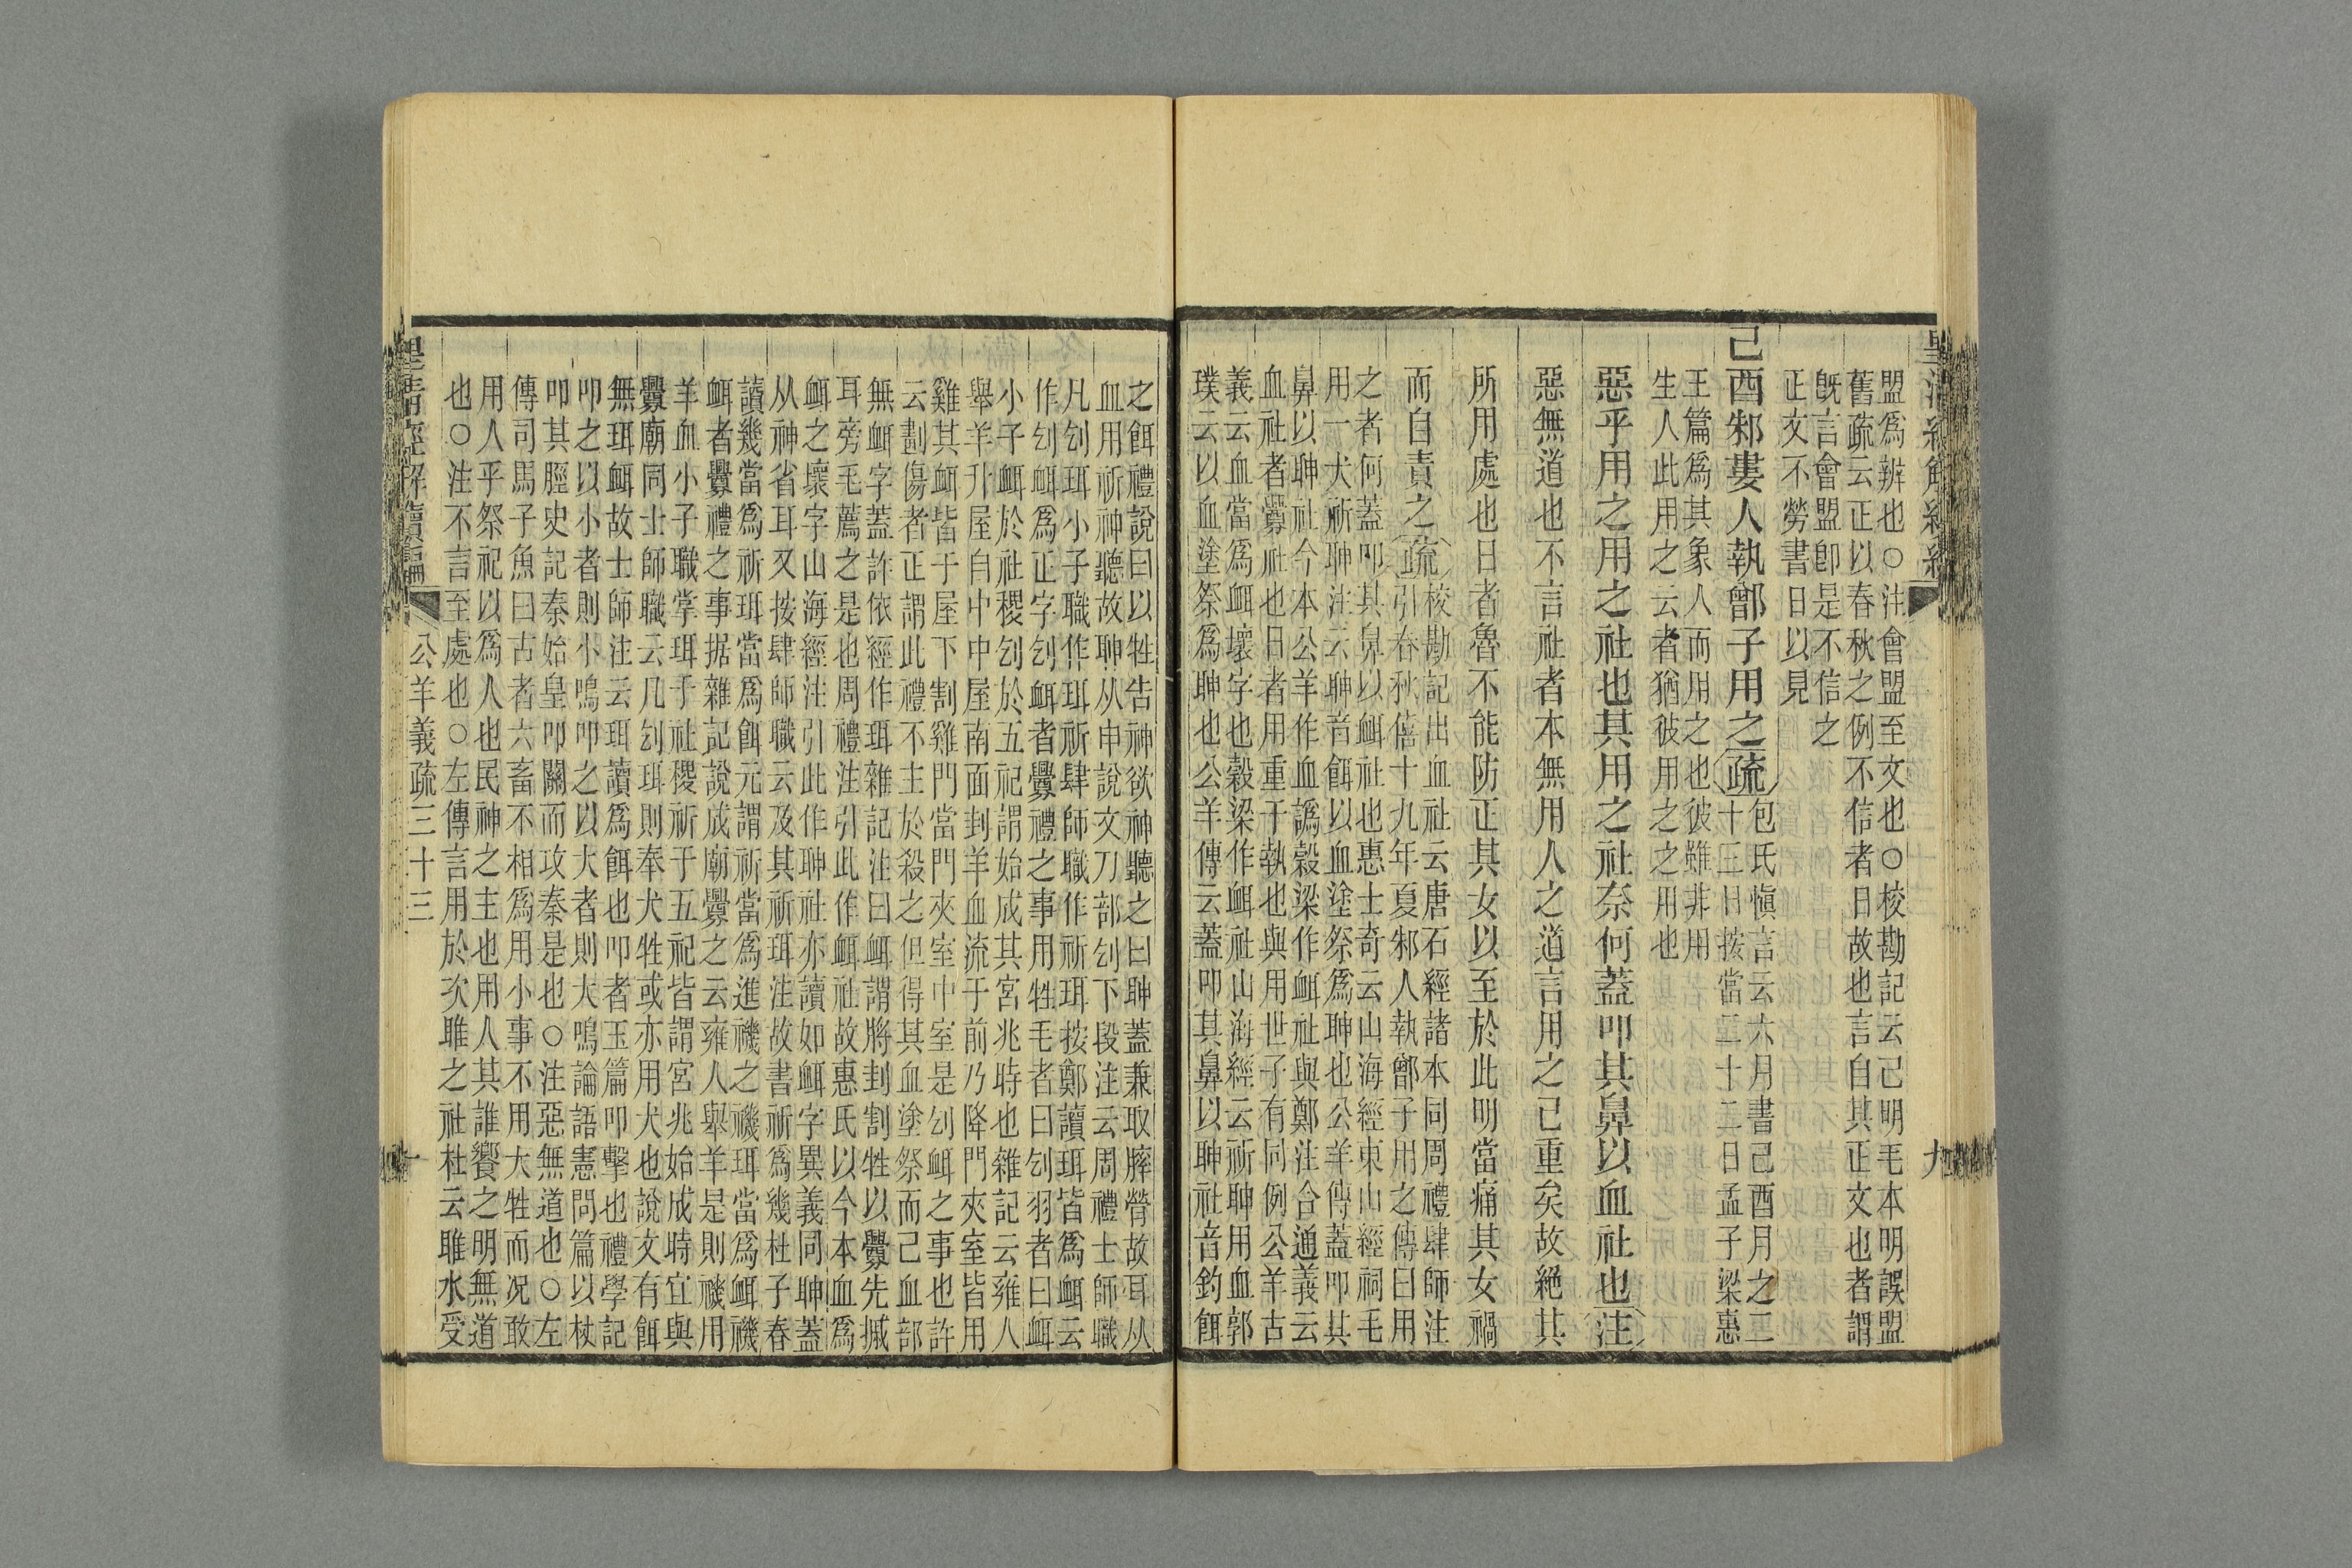 盟爲辨也○注會盟至文也○校勘記云己明毛本明誤盟
舊疏云正以春秋之例不信者日故也言自其正文也者謂
旣言會盟卽是不信之
正文不勞書日以見
己酉邾婁人執鄫子用之疏
包氏愼言云六月書己酉月之二
十三日按當二十二日孟子梁惠
王篇爲其象人而用之也彼雖非用
生人此用之云者猶彼用之之用也
惡乎用之用之社也其用之社奈何蓋叩其鼻以血社也注
惡無道也不言社者本無用人之道言用之已重矣故絕其
所用處也日者魯不能防正其女以至於此明當痛其女禍
而自責之疏
校勘記出血社云唐石經諸本同周禮肆師注
引春秋僖十九年夏邾人執鄫子用之傳曰用
之者何蓋叩其鼻以衈社也惠士奇云山海經東山經祠毛
用一犬祈聃注云聃音餌以血塗祭爲聃也公羊傳蓋叩其
鼻以聃社今本公羊作血譌穀梁作衈社與鄭注合通義云
血社者釁社也日者用重于執也與用世子有同例公羊古
義云血當爲衈壞字也穀梁作衈社山海經云祈聃用血郭
璞云以血塗祭爲聃也公羊傳云蓋叩其鼻以聃社音釣餌
之餌禮說曰以牲告神欲神聽之曰聃蓋兼取膟膋故耳从
血用祈神聽故聃从申說文刀部刉下段注云周禮士師職
凡刉珥小子職作珥祈肆師職作祈珥按鄭讀珥皆爲衈云
作刉衈爲正字刉衈者釁禮之事用牲毛者曰刉羽者曰衈
小子衈於社稷刉於五祀謂始成其宮兆時也雜記云雍人
舉羊升屋自中中屋南面刲羊血流于前乃降門夾室皆用
雞其衈皆于屋下割雞門當門夾室中室是刉衈之事也許
云劃傷者正謂此禮不主於殺之但得其血塗祭而已血部
無衈字蓋許依經作珥雜記注曰衈謂將刲割牲以釁先搣
耳旁毛薦之是也周禮注引此作衈社故惠氏以今本血爲
衈之壞字山海經注引此作聃社亦讀如衈字異義同聃蓋
从神省耳又按肆師職云及其祈珥注故書祈爲幾杜子春
讀幾當爲祈珥當爲餌元謂祈當爲進禨之禨珥當爲衈禨
衈者釁禮之事据雜記說成廟釁之云雍人舉羊是則禨用
羊血小子職掌珥于社稷祈于五祀皆謂宮兆始成時宜與
釁廟同士師職云凡刉珥則奉犬牲或亦用犬也說文有餌
無珥衈故士師注云珥讀爲餌也叩者玉篇叩擊也禮學記
叩之以小者則小鳴叩之以大者則大鳴論語憲問篇以杖
叩其脛史記秦始皇叩關而攻秦是也○注惡無道也○左
傳司馬子魚曰古者六畜不相爲用小事不用大牲而況敢
用人乎祭祀以爲人也民神之主也用人其誰饗之明無道
也○注不言至處也○左傳言用於次睢之社杜云睢水受
公羊義疏三十三